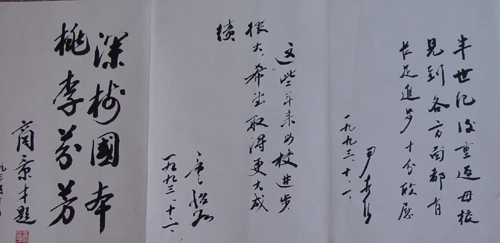 半世纪后重返母校
见到各方面都有
长足進步十分欣慰
一九九三.十一.
这些年来母校進步
很大,希望取得更大成
绩
一九九三.十一.
深树國本
桃李芬芳